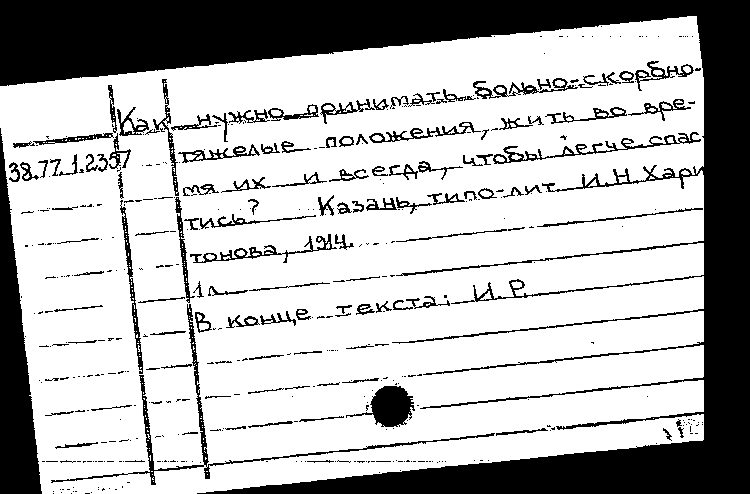 Как нужно принимать больно-скорбно-
38.77.1.2357
тяжелые положения, жить во вре-
мя их и всегда, чтобы легче спас
тись? Казань, типо-лит. И.Н.Хари
тонова, 1914.
1л.
В конце текста: И.Р.